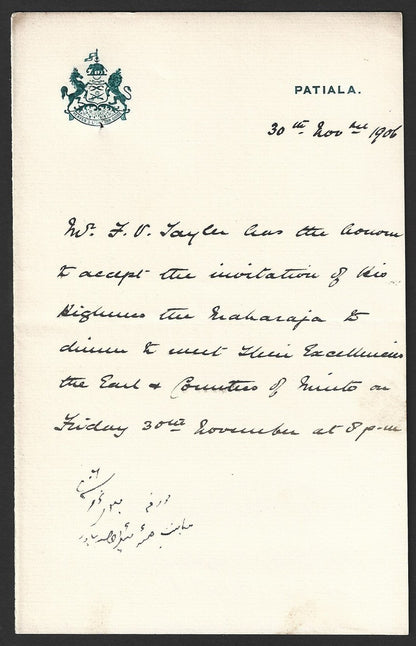 PATIALA.
30th Novber 1906
Mr. F. V. Tayler has the honour
to accept the invitation of His
Highness the Maharaja to
dinner to meet Their Excellencies
the Earl & Countess of Minto on
Friday 30th November at 8 p-m